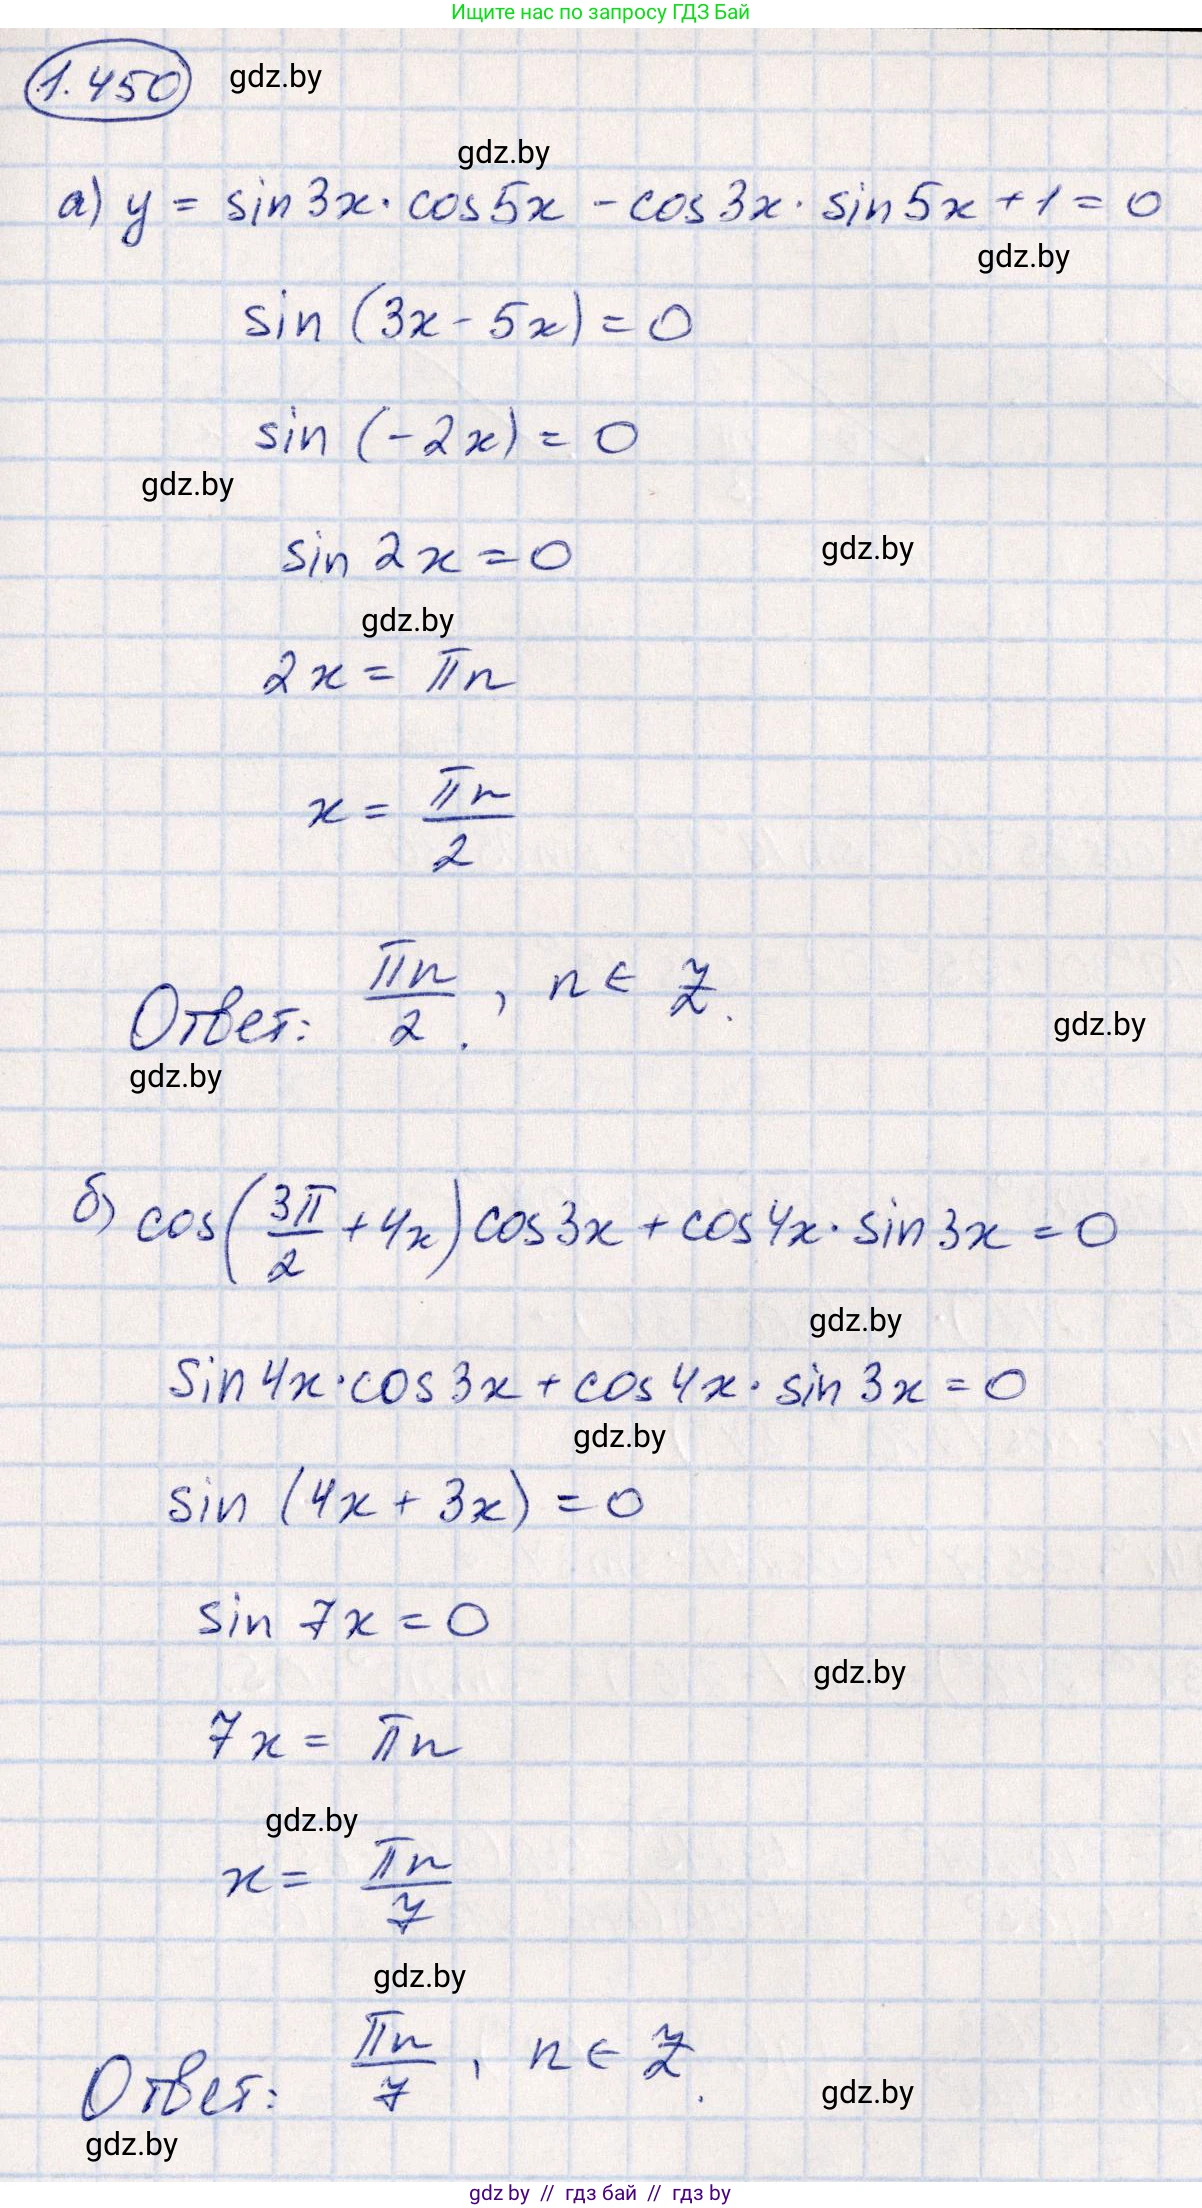 Ищите нас по запросу ГДЗ Бай
1.450 gdz.by
gdz.by
а) y = sin 3x · cos 5x - cos 3x · sin 5x + 1 = 0
gdz.by
sin (3x - 5x) = 0
sin (-2x) = 0
gdz.by
sin 2x = 0 gdz.by
gdz.by
2x = πn
x = πn/2
Ответ: πn/2, n ∈ Z.
gdz.by
gdz.by
б) cos(3π/2 + 4x) cos 3x + cos 4x · sin 3x = 0
gdz.by
sin 4x · cos 3x + cos 4x · sin 3x = 0
gdz.by
sin (4x + 3x) = 0
sin 7x = 0
gdz.by
7x = πn
gdz.by
x = πn/7
gdz.by
Ответ: πn/7, n ∈ Z.
gdz.by
gdz.by
gdz by // гдз бай // гдз by